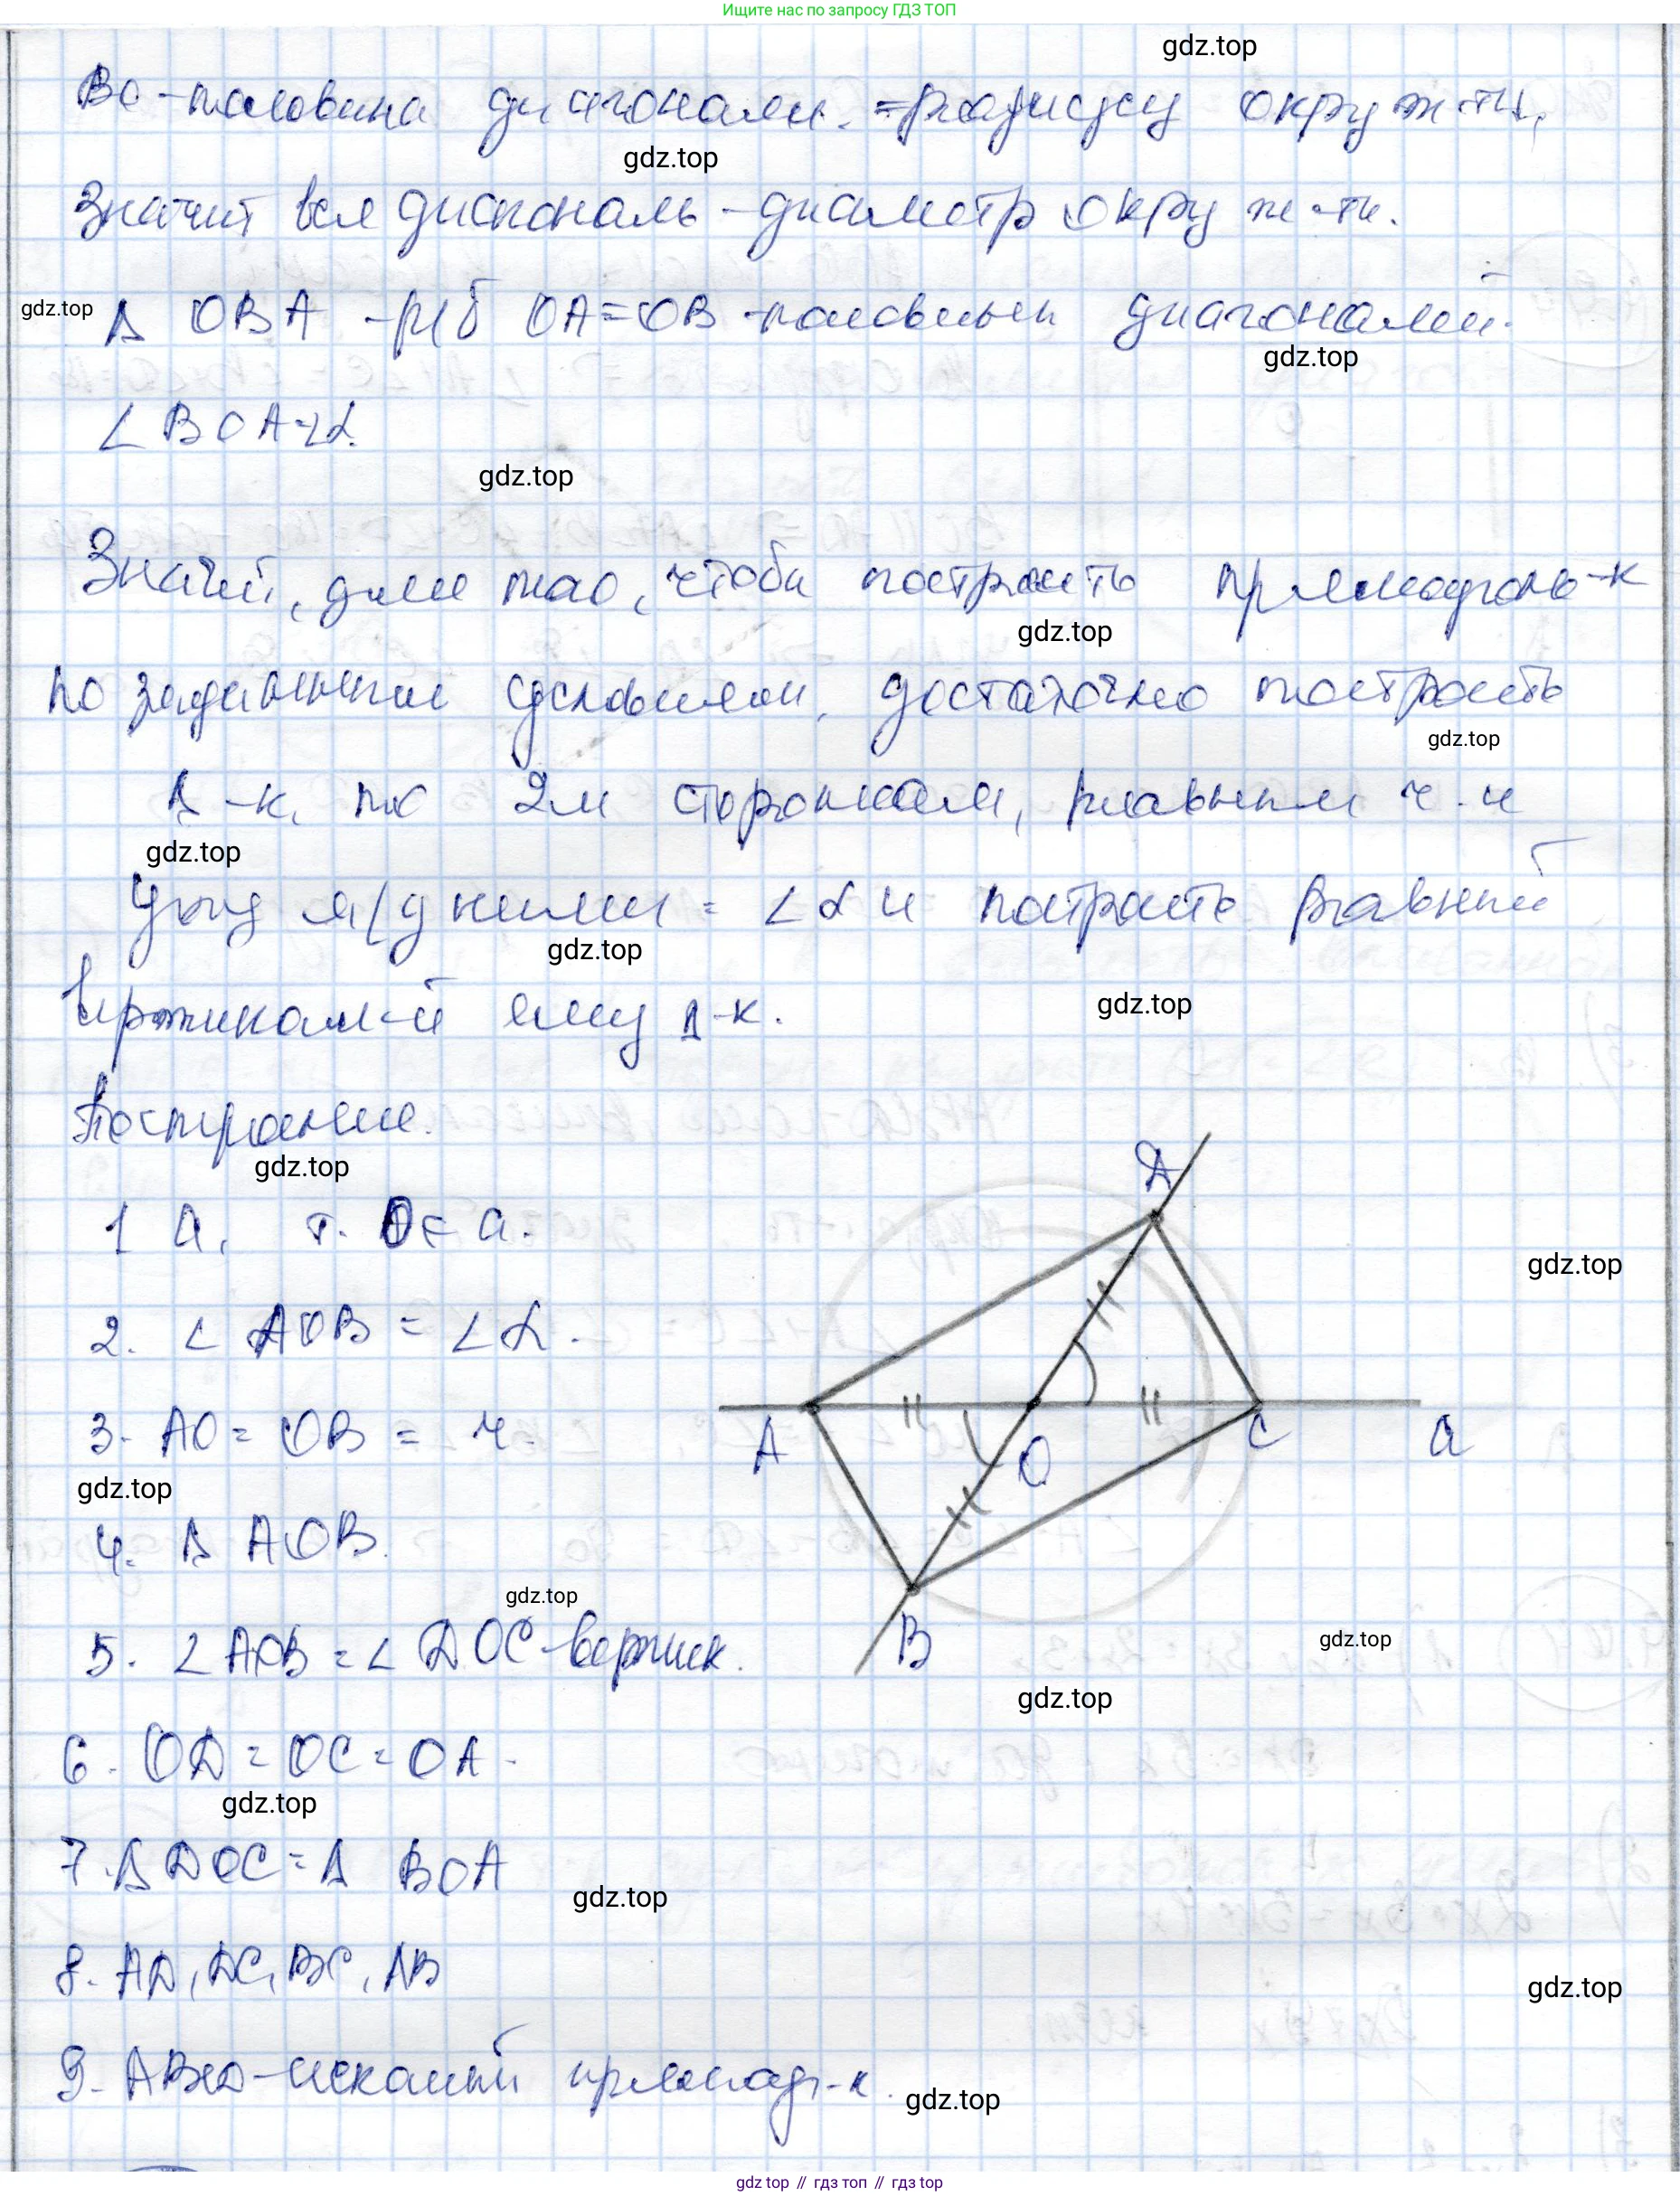 Ищите нас по запросу ГДЗ ТОП
gdz.top
ВО - половина диагонали = радиусу окруж-ти,
gdz.top
Значит вся диагональ - диаметр окруж-ти.
gdz.top
Δ OBA - р/б OA = OB - половины диагоналей.
gdz.top
∠ BOA = ∠α.
gdz.top
Значит, для того, чтобы построить прямоуголь-к
gdz.top
по заданным условиям, достаточно построить
gdz.top
Δ-к по 2м сторонам, равным r и
gdz.top
углу м/д ними = ∠α и построить равный
gdz.top
вертикал-й ему Δ-к.
gdz.top
Построение.
gdz.top
1 a, т. O ∈ a.
gdz.top
2. ∠ AOB = ∠α.
3. AO = OB = r.
gdz.top
4. Δ AOB.
gdz.top
5. ∠AOB = ∠ DOC - вертик.
gdz.top
gdz.top
6. OD = OC = OA.
gdz.top
7. Δ DOC = Δ BOA
gdz.top
8. AD, DC, BC, AB
gdz.top
9. ABCD - искомый прямоуг-к.
gdz.top
D
A
O
C
a
B
gdz.top // гдз топ // гдз top